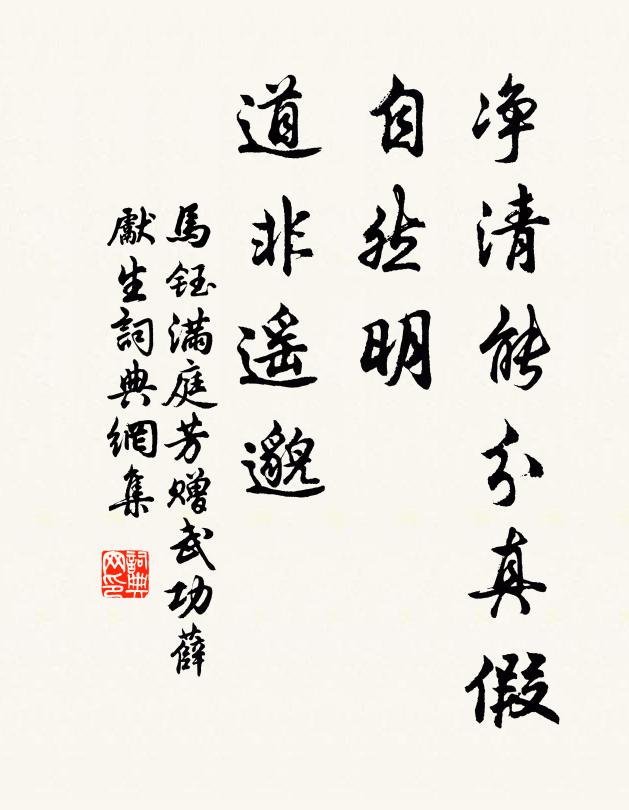 净清能分真假
自然明
道非遥邈
馬鈺满庭芳赠武功薛
獻生詞典網集
詞典网印